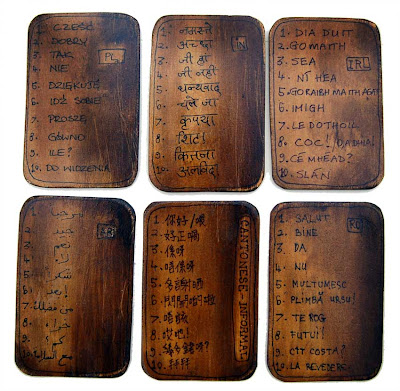 1. CZEŚĆ
2. DOBRY
3. TAK
PL
4. NIE
5. DZIĘKUJĘ
6. IDŹ SOBIE
7. PROSZĘ
8. GÓWNO
9. ILE?
10. DO WIDZENIA
1. नमस्ते
2. अच्छा
IN
3. जी हाँ
4. जी नहीं
5. धन्यवाद
6. चले जा
7. कृपया
8. शिट!
9. कितना
10. अलविदा
1. DIA DUIT
2. GO MAITH
3. SEA
IRL
4. NÍ HEA
5. GO RAIBH MAITH AGAT
6. IMIGH
7. LE DO THOIL
8. COC!
9. CÉ MHEAD?
10. SLÁN
1. مرحبا
3. نعم
4. لا
5. شكرا
6.
7. من فضلك
8. خراء
9. كم
10. مع السلامة
1. 你好/喂
2. 好正喎
3. 係呀
4. 唔係呀
5. 多謝晒
6.
7. 唔該
8. 哎吔!
9.
10. 拜拜
CANTONESE - INFORMAL
1. SALUT
RO
2. BINE
3. DA
4. NU
5. MULTUMESC
6. PLIMBĂ URSU!
7. TE ROG
8. FUTUI?
9. CÎT COSTA?
10. LA REVEDERE